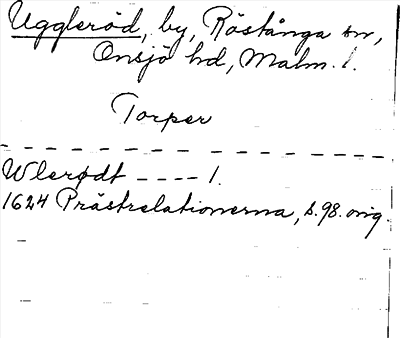 Uggleröd, by, Röstånga sn,
Onsjö hd, Malm. l.
Torper
Wlerødt ---- 1.
1624 Prästrelationerna, s. 98. orig.